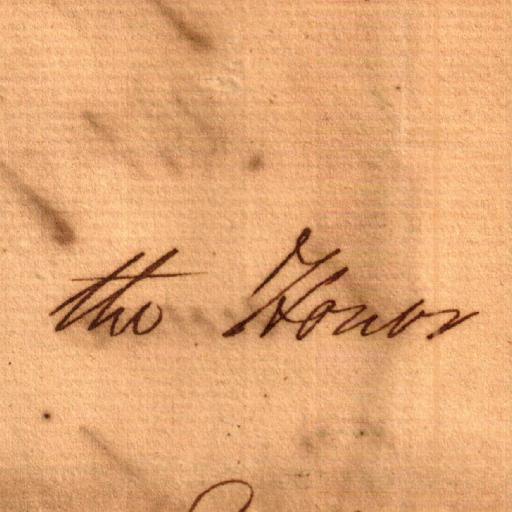 the Honor